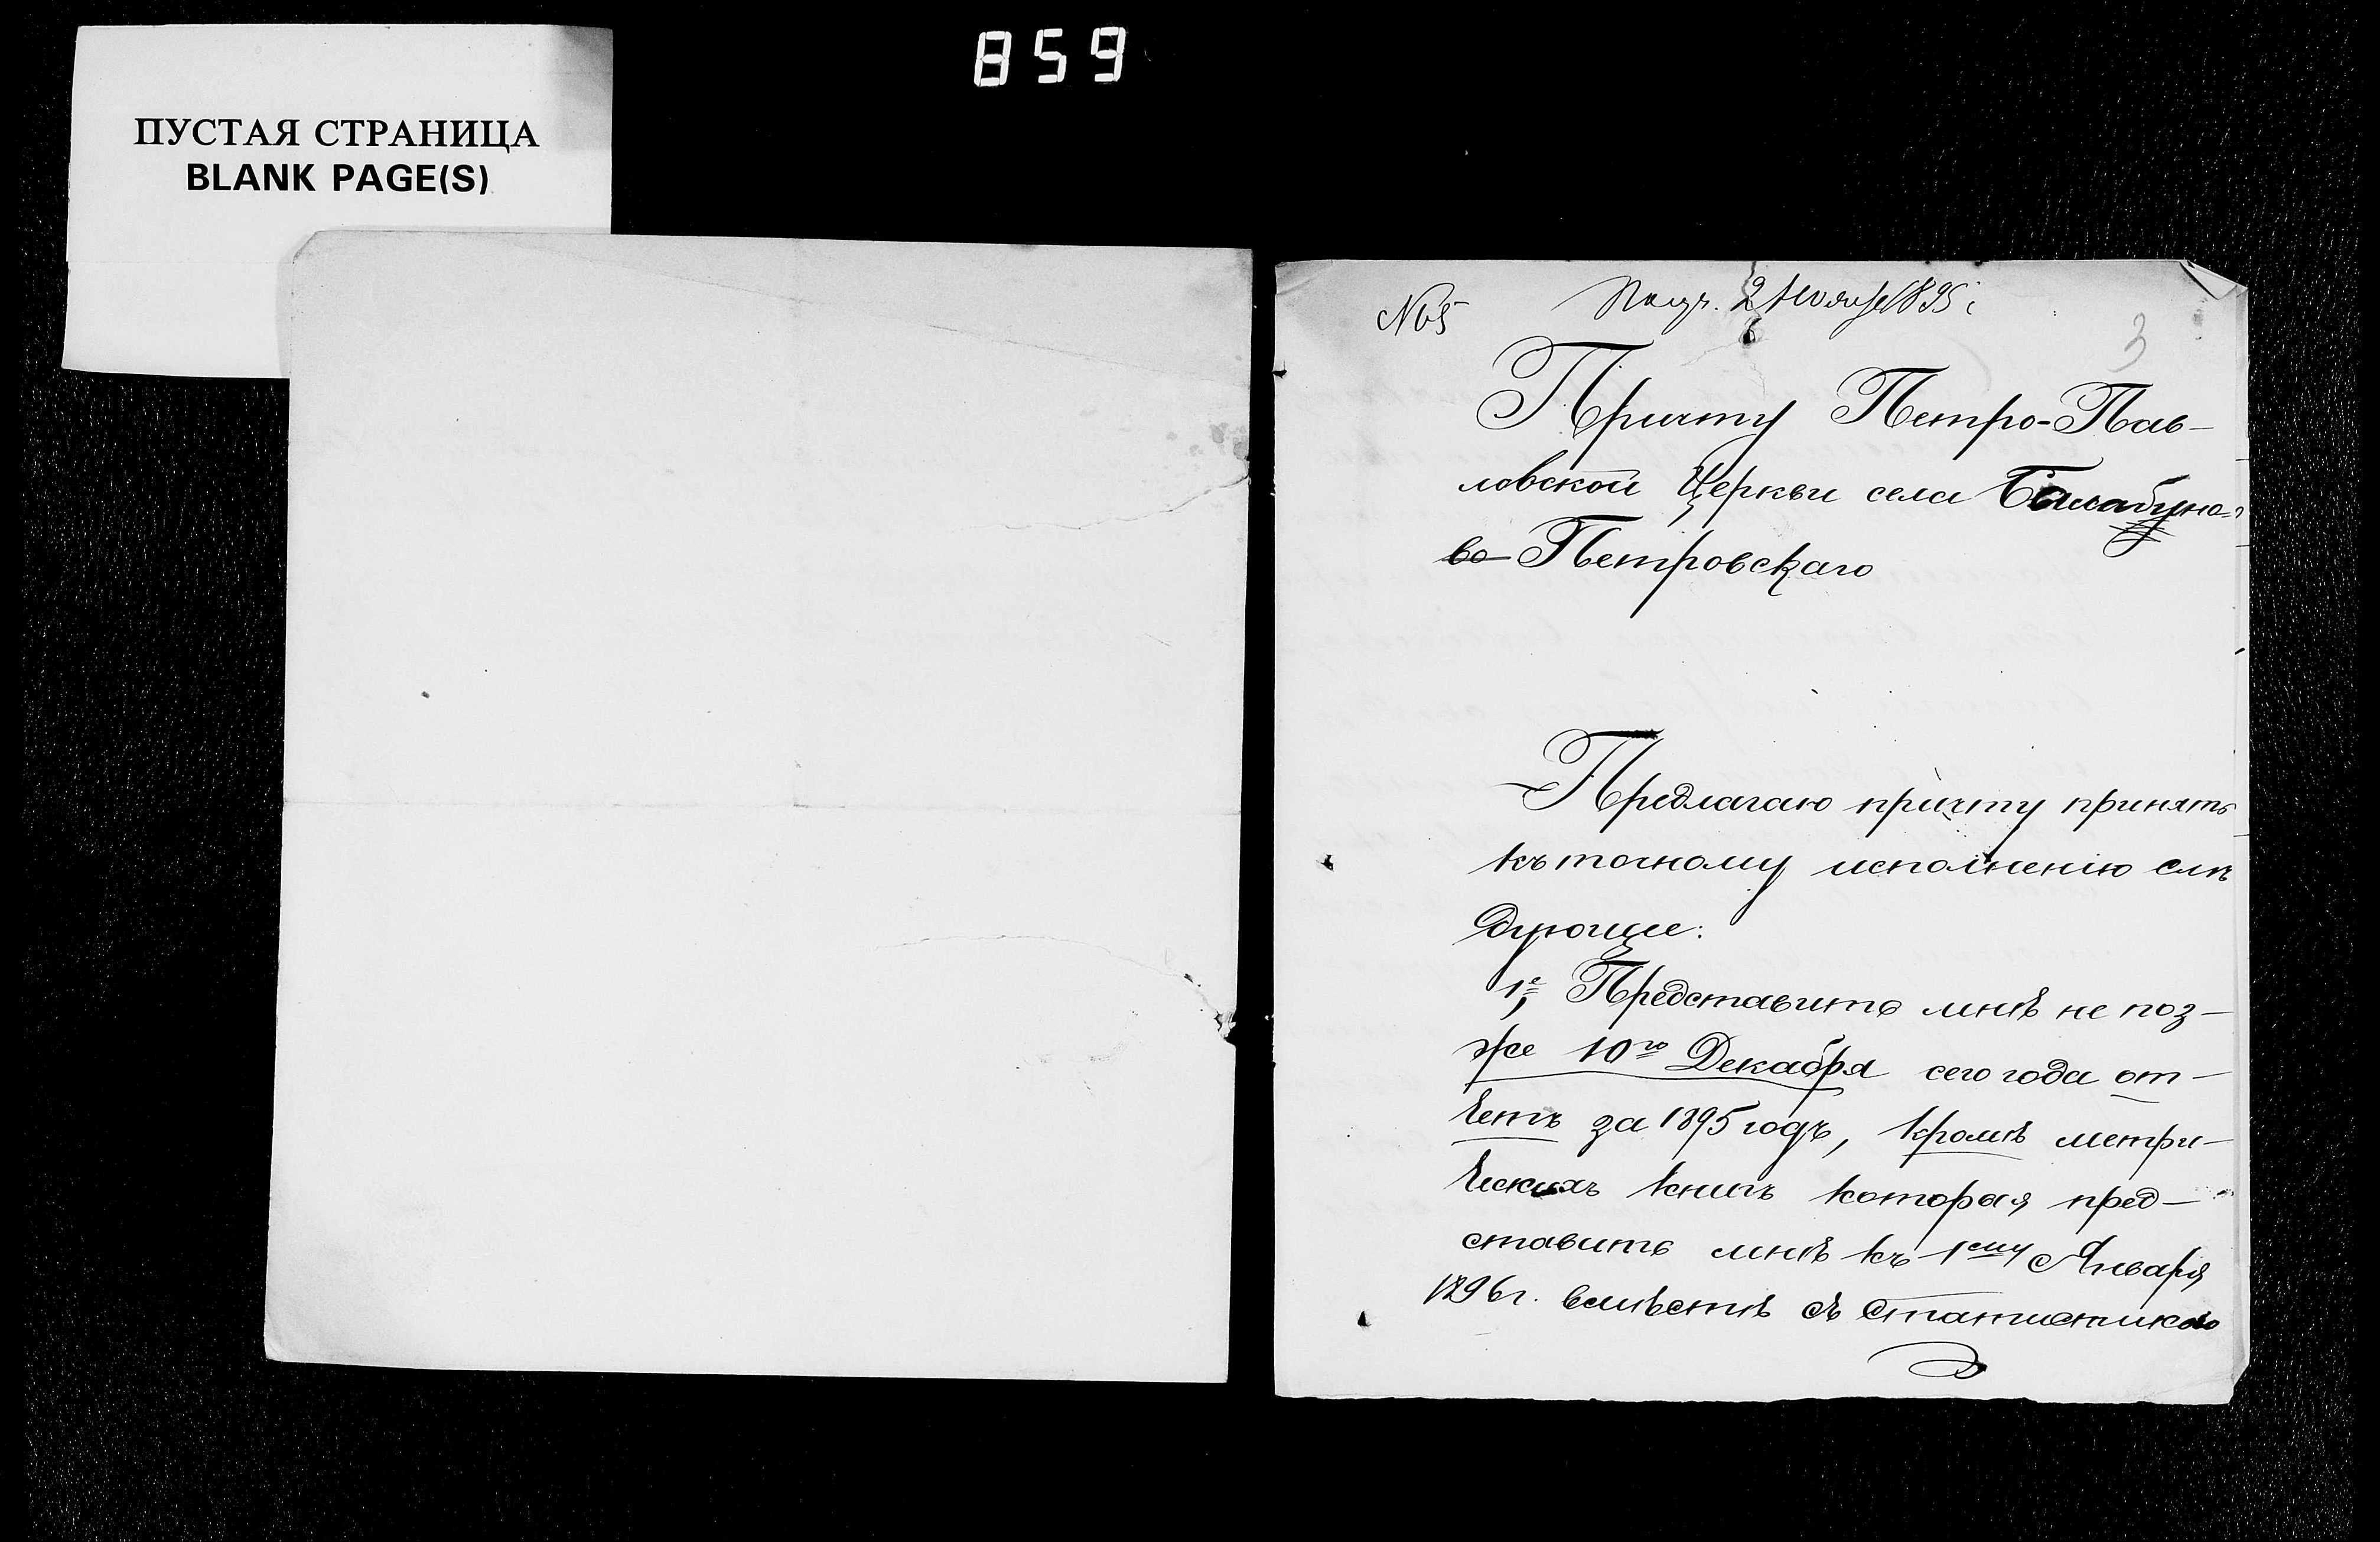 859
ПУСТАЯ СТРАНИЦА
BLANK PAGE(S)
№65 Получ. 2 Ноября 1895 г.
3
Причту Петро-Пав-
ловской Церкви села Балабуно-
во-Петровскаго
Предлагаю причту принять
къ точному исполненію слѣ
дующее:
1е, Представить мнѣ не поз-
же 10го Декабря сего года от-
четъ за 1895 годъ, кромѣ метри-
ческихъ книгъ которыя пред-
ставить мнѣ къ 1ему Января
1896 г. вмѣстѣ съ статистикою